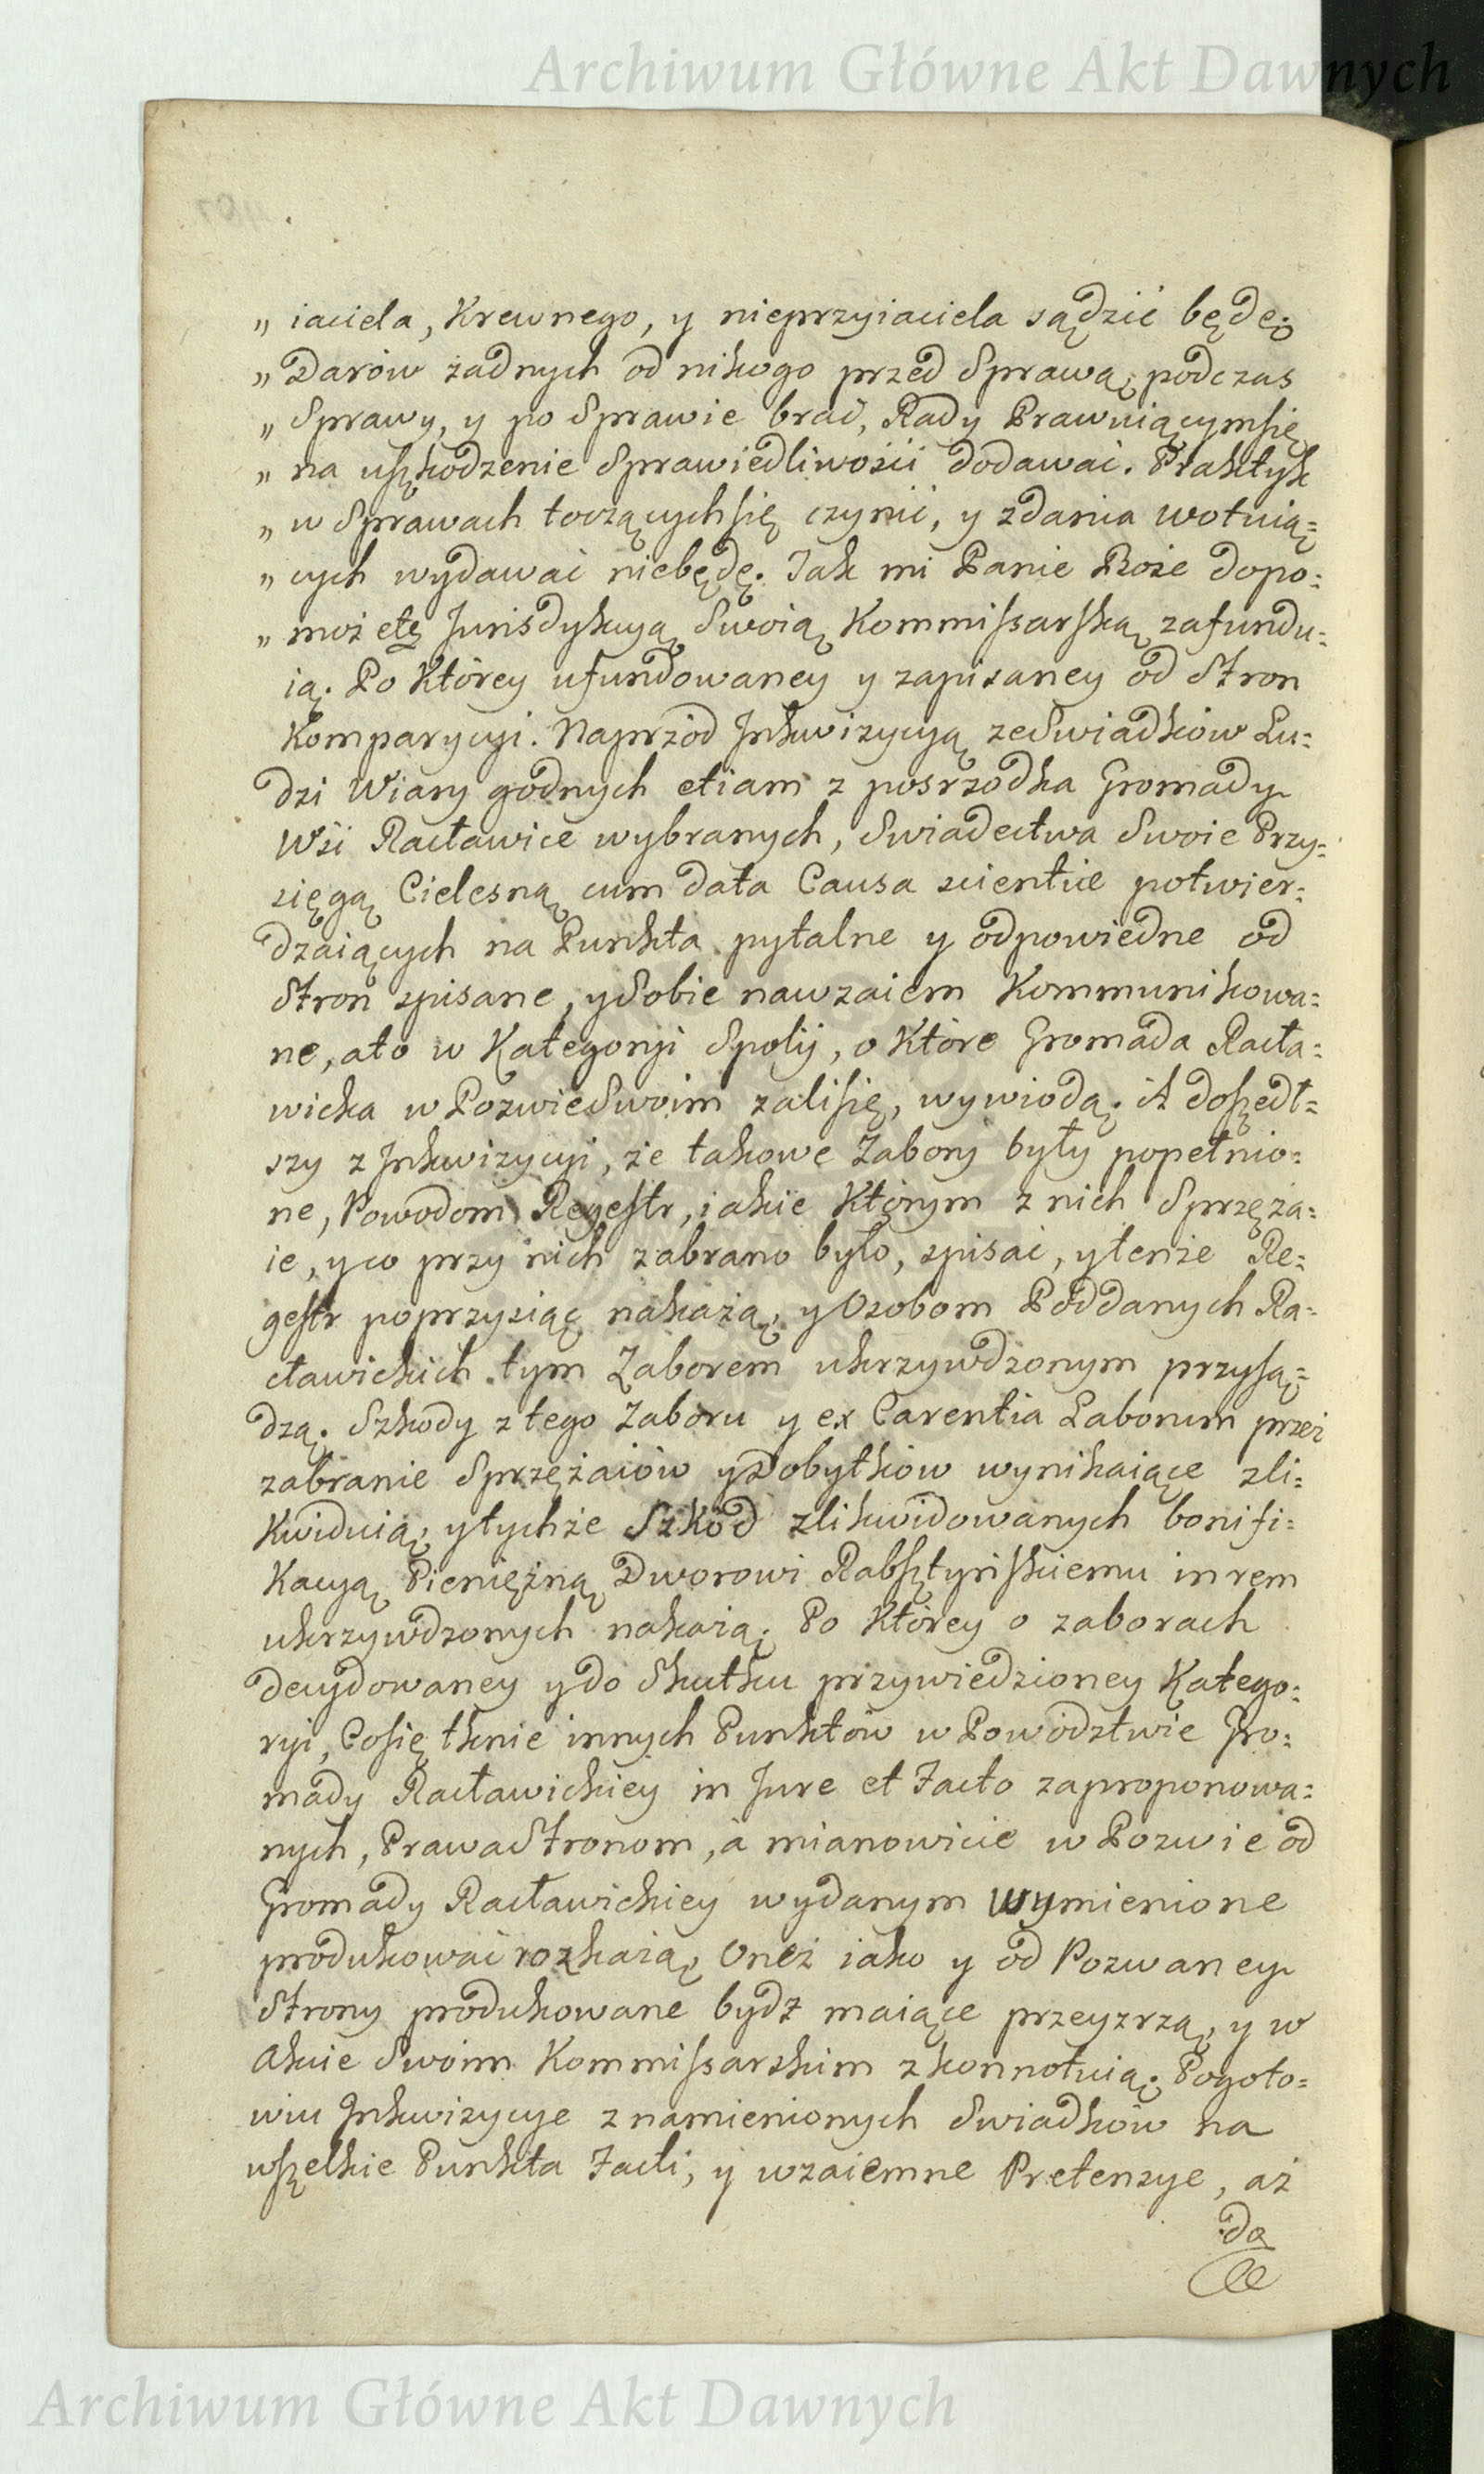 Archiwum Główne Akt Dawnych
„ iaciela, Krewnego, y nieprzyiaciela sądzić będę;
„ Darów żadnych od nikogo przed Sprawą, podczas
„ Sprawy, y po Sprawie brać, Rady Prawuiącymsię
„ na uszkodzenie Sprawiedliwości dodawać. Praktyk
„ w Sprawach toczącychsię czynić, y zdania wotuią=
„ cych wydawać niebędę. Jak mi Panie Boże dopo=
„ moż etc Jurisdykcyą Swoią Kommissarską zafundu=
ią. Po Którey ufundowaney y zapisaney od Stron
Komparycyi. Naprzód Inkwizycyą ze Swiadków Lu=
dzi Wiary godnych etiam z posrzodka Gromady
Wsi Racławice wybranych, Swiadectwa Swoie Przy=
sięgą Cielesną cum data Causa scientiae potwier=
dzaiących na Punkta pytalne y odpowiedne od
Stron spisane, y Sobie nawzaiem Kommunikowa=
ne, ato w Kategoryi Spolij, o Które Gromada Racła=
wicka w Pozwie Swoim żalisię, wywiodą. A doszedł=
szy z Inkwizycyi, że takowe Zabory były popełnio=
ne, Powodom Regestr, iakie Którym z nich Sprzęża=
ie, y co przy nich zabrano było, spisać, y tenże Re=
gestr poprzysiąc nakażą, y Osobom Poddanych Ra=
cławickich tym Zaborem ukrzywdzonym przysą=
dzą. Szkody z tego Zaboru y ex Carentia Laborum przez
zabranie Sprzężaiów y Dobytków wynikaiące zli=
kwiduią, y tychże Szkód zlikwidowanych bonifi=
Kacyą Pieniężną Dworowi Rabsztyńskiemu in rem
ukrzywdzonych nakażą. Po Którey o zaborach
decydowaney y do Skutku przywiedzioney Katego=
ryi, Cosię tknie innych Punktów w Powództwie Gro=
mady Racławickiey in Jure et Facto zaproponowa=
nych, Prawa Stronom, a mianowicie w Pozwie od
Gromady Racławickiey wydanym wymienione
produkować rozkażą, Oneż iako y od Pozwaney
Strony produkowane bydź maiące przeyzrzą, y w
Akcie Swoim Kommissarskim zkonnotuią. Pogoto=
wiu Inkwizycye z namienionych Swiadków na
wszelkie Punkta Facti, y wzaiemne Pretensye, aż
do
Archiwum Główne Akt Dawnych